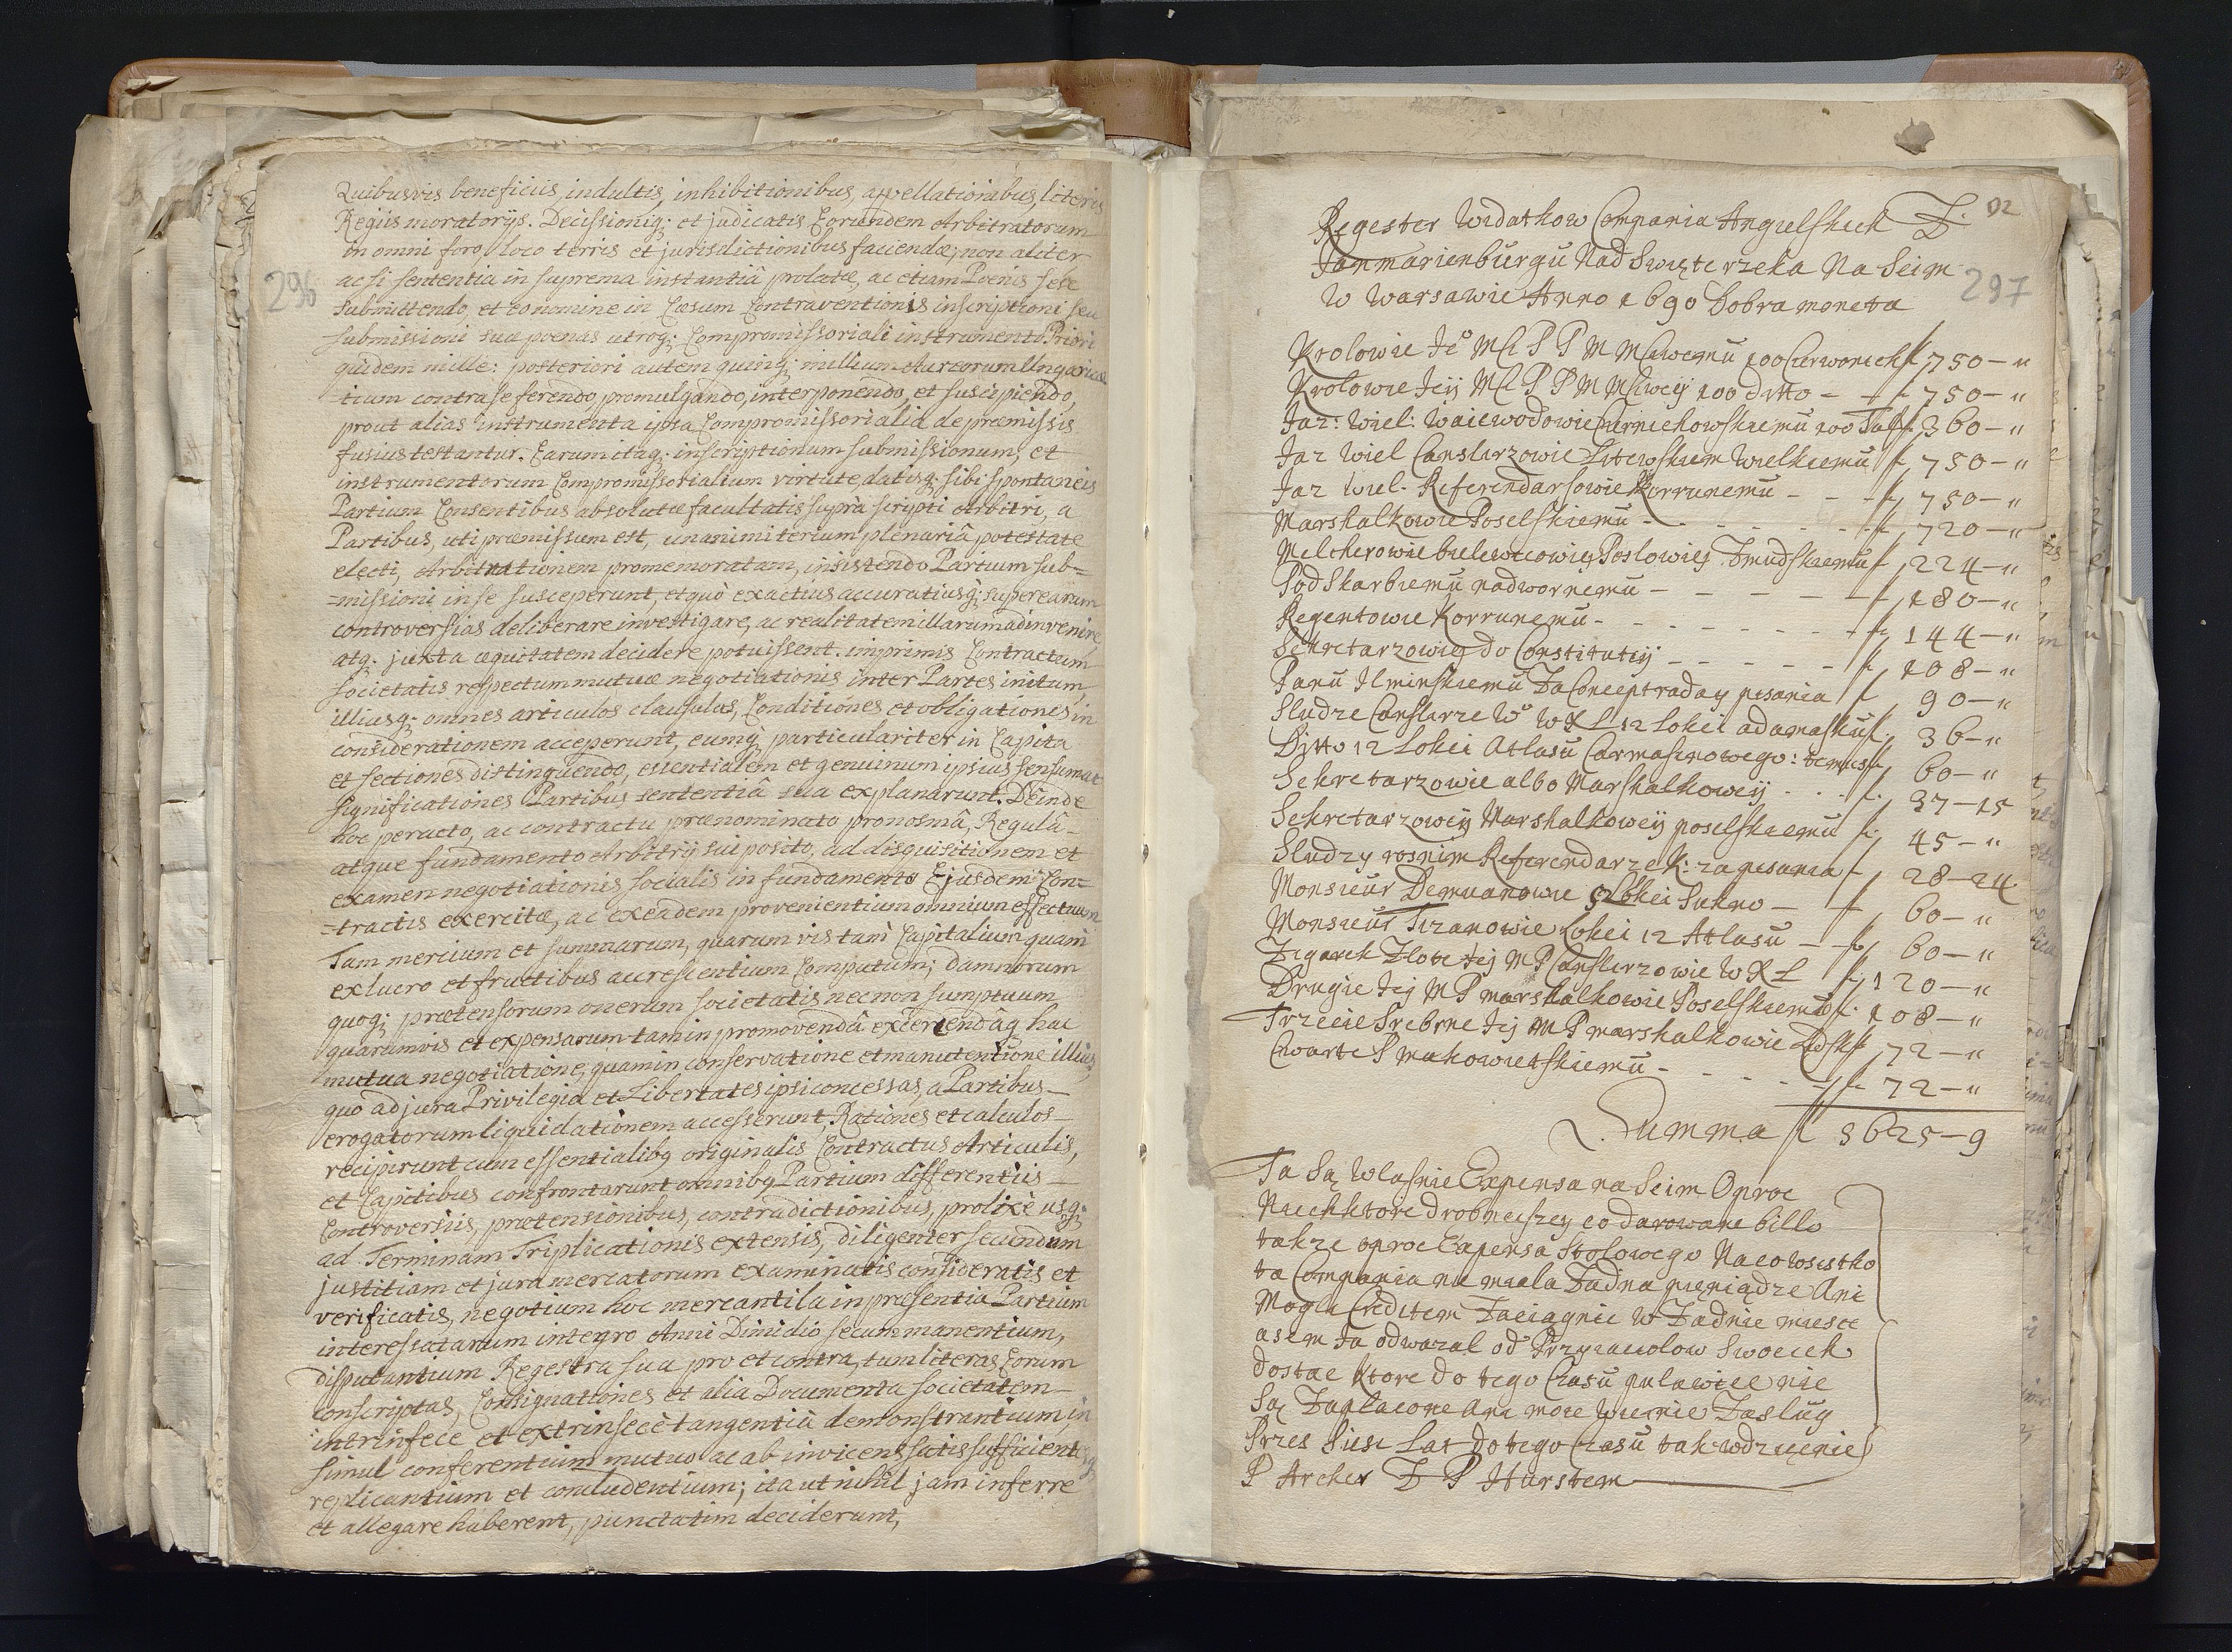 Quibusvis beneficiis, indultis, inhibitionibus, appellationibus, literis
Regiis moratorijs. Decissioniq; et judicatis Eorundem Arbitratorum
in omni foro, loco terris et jurisdictionibus faciendæ, non aliter
ac si sententia in suprema instantiâ prolatæ, ac etiam Poenis sese
submittendo, et eo nomine in Casum Contraventionis inscriptioni seu
submissioni suæ poenas utroq; Compromissoriali instrumento Priori
quidem mille: posteriori autem quinq; millium Aureorum Ungarica=
=lium contra se ferendo, promulgando, interponendo, et suscipiendo,
prout alias instrumenta ipsa Compromissorialia de præmissis
fusius testantur. Earum itaq; inscriptionum submissionum, et
instrumentorum Compromissorialium virtute datisq; sibi spontaneis
Partium Consentibus absolutæ facultatis suprà scripti Arbitri, a
Partibus, uti præmissum est, unanimiter cum plenariâ potestate
electi, Arbitrationem promemoratam, insistendo Partium sub=
=missioni in se susceperunt, et quò exactius accuratiusq; super earum
controversias deliberare investigare, ac realitatem illarum adinvenire,
atq; juxta æquitatem decidere potuissent. imprimis Contractum
societatis respectum mutuæ negotiationis inter Partes initum,
illiusq; omnes articulos clausulas, Conditiones et obligationes in
considerationem acceperunt, eumq; particulariter in Capita
et sectiones distinguendo, essentialem et genuinum ipsius sensum ac
significationes Partibus sententiâ sua explanarunt. Deinde
hoc peracto, ac contractu prænominato pro nosmâ, Regulâ-
atque fundamento Arbitrij sui posito, ad disquisitionem et
examen negotiationis socialis in fundamento Ejusdem Con=
=tractis exercitæ, ac ex eadem provenientium omnium effectuum
Tam mercium et summarum, quarumvis tam Capitalium quam
ex lucro et fructibus accrescentium Computum; damnorum
quoq; prætensorum onerum societatis necnon sumptuum
quarumvis et expensarum tam in promovendâ exercendâq hac
mutua negotiatione, quam in conservatione et manutentione illius,
quo ad jura Privilegia et Libertates ipsi concessas, a Partibus
erogatorum liquidationem accesserunt, Rationes et calculos
recipirunt cum essentialibq originalis Contractus Articulis,
et Capitibus confrontarunt omnibq Partium differentiis
Controversiis, prætensionibus, contradictionibus, prolixè usq;
ad Terminum Triplicationis extensis, diligenter secundum
justitiam et jura mercatorum examinatis consideratis et
verificatis, negotium hoc mercantila in præsentia Partium
interessatarum integro Anni Dimidio secum manentium,
disputantium Regestra sua pro et contra, tum literas Eorum
conscriptas, Consignationes et alia Documenta societatem
intrinsece et extrinsecè tangentiâ demonstrantium, in
simul conferentium mutuo ac ab invicem satis sufficienter
replicantium et concludentium; ita ut nihil jam inferre
et allegare haberent, punctatim deciderunt,
296
92
297
Regester Widatkow Compania Angielskich Z
Janmarienburgu Nad Swięte rzeka Na Seim
W Warsawie Anno 1690 Dobra moneta
Krolowie Je° Mci P P M Mciwemu 100 Czerwonech f 750 – "
Krolowie Jey Mci P P M Mciwey 100 ditto – – f 750 – "
Jaz: Wiel: Waiewodowie Czerniehowskiemu 100 Tal f 360 – "
Jaz Wiel Canslerzowie Litewskiem Wielkiemu f 750 – "
Jaz Wiel. Referendarsowie Korrunemu – – – f 750 – "
Marshalkowie Poselskiemu – – – – – f 720 – "
Melcherowie Bilewicowiey Poslowiey Zmudskiemu f 224 – "
Podskarbiemu nadwornemu – – – – – f 180 – "
Regentowie Korrunemu – – – – – – f 144 – "
Sekretarzowiey do Constitutiy – – – – – f 108 – "
Panu Ilminskiemu Za Concept raday pisania f 90 – "
Sludze Canslarze W° W X L 12 Lokei adamasku f. 36 – "
Ditto 12 Lokei Atlasu Carmasinowego: f 60 – "
Sekretarzowie albo Marshalkowey . . . f. 37 – 15
Sekretarzowey Marshalkowey poselskiemu f. 45 – "
Sludzy rosnim Referendarze K: za pisania f 28 – 24
Monsieur Lokei Sukno – f 60 – "
Monsieur Lokei 12 Atlasu – f 60 – "
Zegarek Zlote Jey M P Canslerzowie W X L f 120 – "
Drugie Jey M P marshalkowie Poselskiemu f. 108 – "
Trzecie Srebrne Jey M P marshalkowie f 72 – "
Cwarte Smakowietskiemu – – – – f 72 – "
Summa f 5625 – 9
Ta Są Wlasnie Expensa na Seim Oproc
Niechktore drobneiszey co darowane billo
takze oproc Expensa Stolowego Na co wsistko
ta Compania nie miala Zadna pięniądze Ani
Mogla Creditem Zaciagnie W Zadnie miesce
asem Ja odwazal od Przyiaciolow Swoiech
dostac Ktore do tego Czasu pulawice nie
Są Zaplacone Ani moie Wiernie Zaslug
Przes Siesc Lat do tego Czasu tak wdzięcnie
P Archer Z P Hurstem